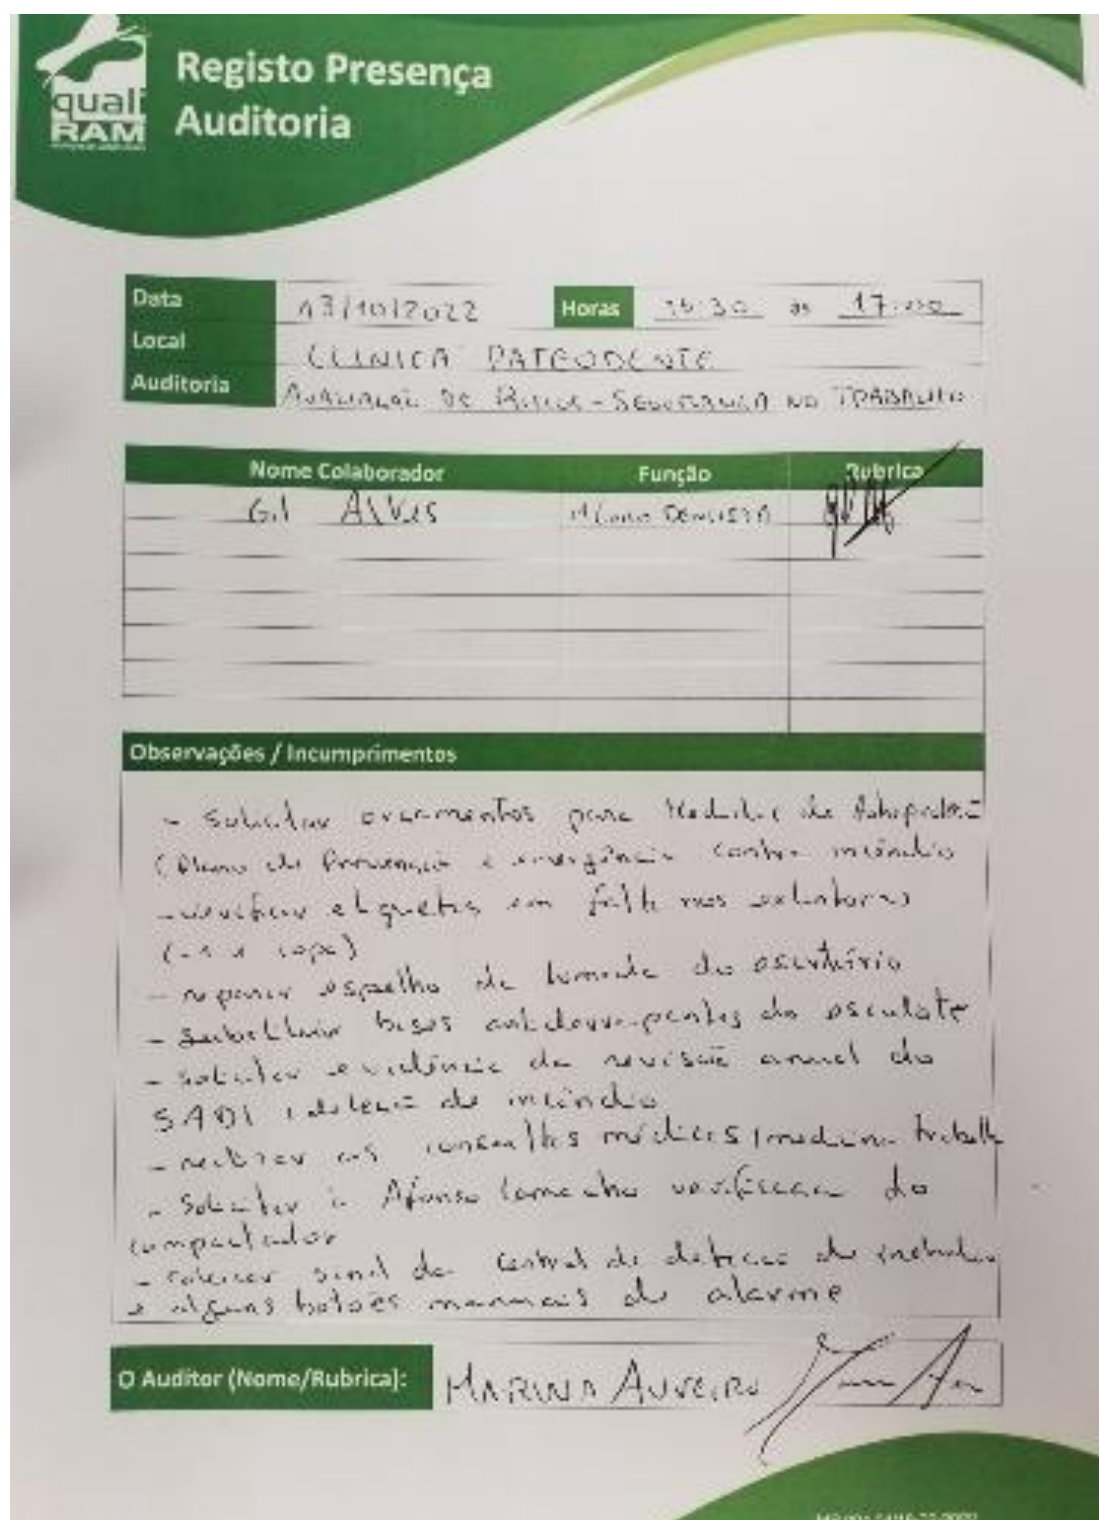 Registo Presença
Auditoria
quali
RAM
Data 13/10/2022 Horas :30 às 17:00
Local CLINICA PATEODENTE
Auditoria AVALIAÇÃO DE RISCOS - SEGURANÇA NO TRABALHO
Nome Colaborador Função Rubrica
Gil Alves Médico DENTISTA
Observações / Incumprimentos
- Solicitar orçamentos para Medidas de Autoproteção
(Plano de Prevenção e emergência contra incêndio
- verificar etiquetas em falta nos extintores
- reparar espelho da tomada do escritório
- substituir bases antiderrapantes do escadote
- solicitar evidência da revisão anual do
SADI deteção de incêndio
- as consultas médicas/medicina trabalho
- Solicitar à Afonso Camacho verificação do
compactador
- colocar sinal da central de deteção de incêndio
e alguns botões manuais de alarme
O Auditor (Nome/Rubrica): MARINA